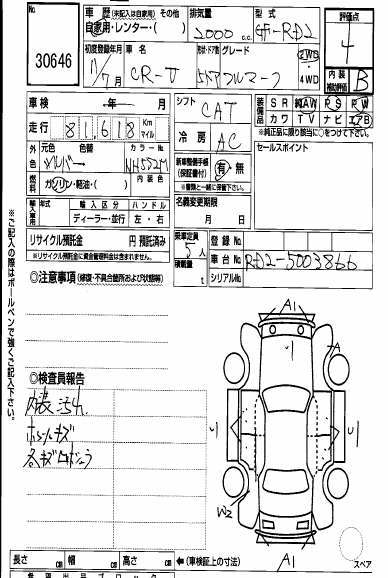 No. 30646
車歴 (未記入は自家用) その他
自家用・レンター・( )
排気量 2000 c.c.
型式 GF-RD2
評価点 4
初度登録年月 11/7月
車名 CR-V
形状・ドア数 5D
グレード フルマーク
2WD
・
4WD
内装補助評価 B
車検 年 月
走行 81,618 Km マイル
シフト CAT
冷房 AC
装備品 SR 純正AW PS PW
カワ TV ナビ エアB
※純正品に限り該当に○をつけて下さい。
外色 シルバー
色替
カラー No. NH552M
燃料 ガソリン・軽油・( )
内装色
新車整備手帳(保証書付) 有・無
※書類と一緒に保管下さい。
セールスポイント
輸入車用 年式 輸入区分 ハンドル
ディーラー・並行 左・右
名義変更期限
月 日
リサイクル預託金 円 預託済み
※リサイクル預託金に資金管理料金は含まれておりません。
乗車定員 5人
積載量 t
登録 No.
車台 No. RD2-5003866
シリアルNo.
◎注意事項 (修復・不具合箇所および状態等)
A1
A
◎検査員報告
内装汚れ
ホイールキズ
各キズ
W2
A1
スペア
※ご記入の際はボールペンで強くご記入下さい。
長さ cm 幅 cm 高さ cm ←(車検証上の寸法)